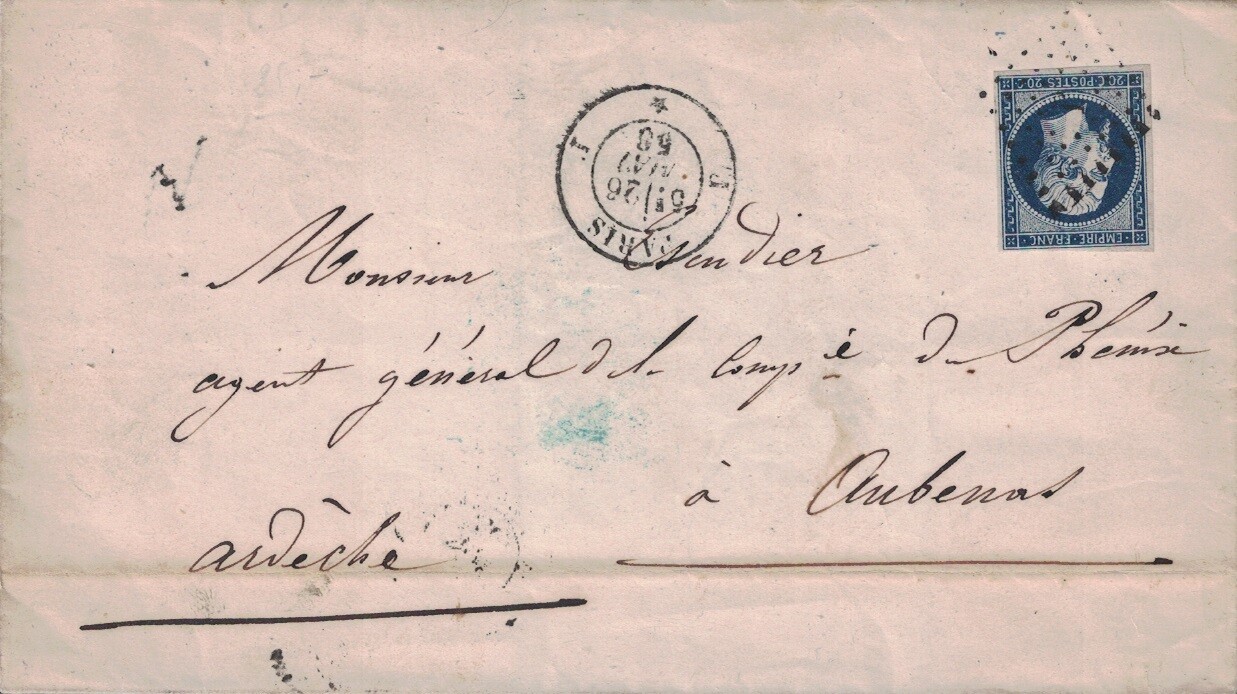 20 C·POSTES 20 C
EMPIRE·FRANC
PARIS
J
26
MAI
58
Monsieur
agent général de la Comp.ie du Phénix
à Aubenas
ardèche